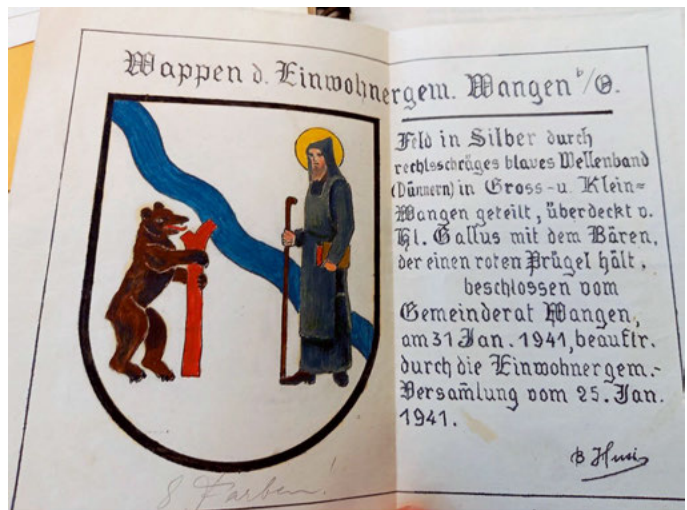 Wappen d. Einwohnergem. Wangen b/O.
Feld in Silber durch
rechtsschräges blaues Wellenband
(Dünnern) in Gross- u. Klein=
Wangen geteilt, überdeckt v.
Hl. Gallus mit dem Bären,
der einen roten Prügel hält,
beschlossen vom
Gemeinderat Wangen,
am 31 Jan. 1941, beauftr.
durch die Einwohnergem.-
Versam̄lung vom 25. Jan.
1941.
8 Farben!